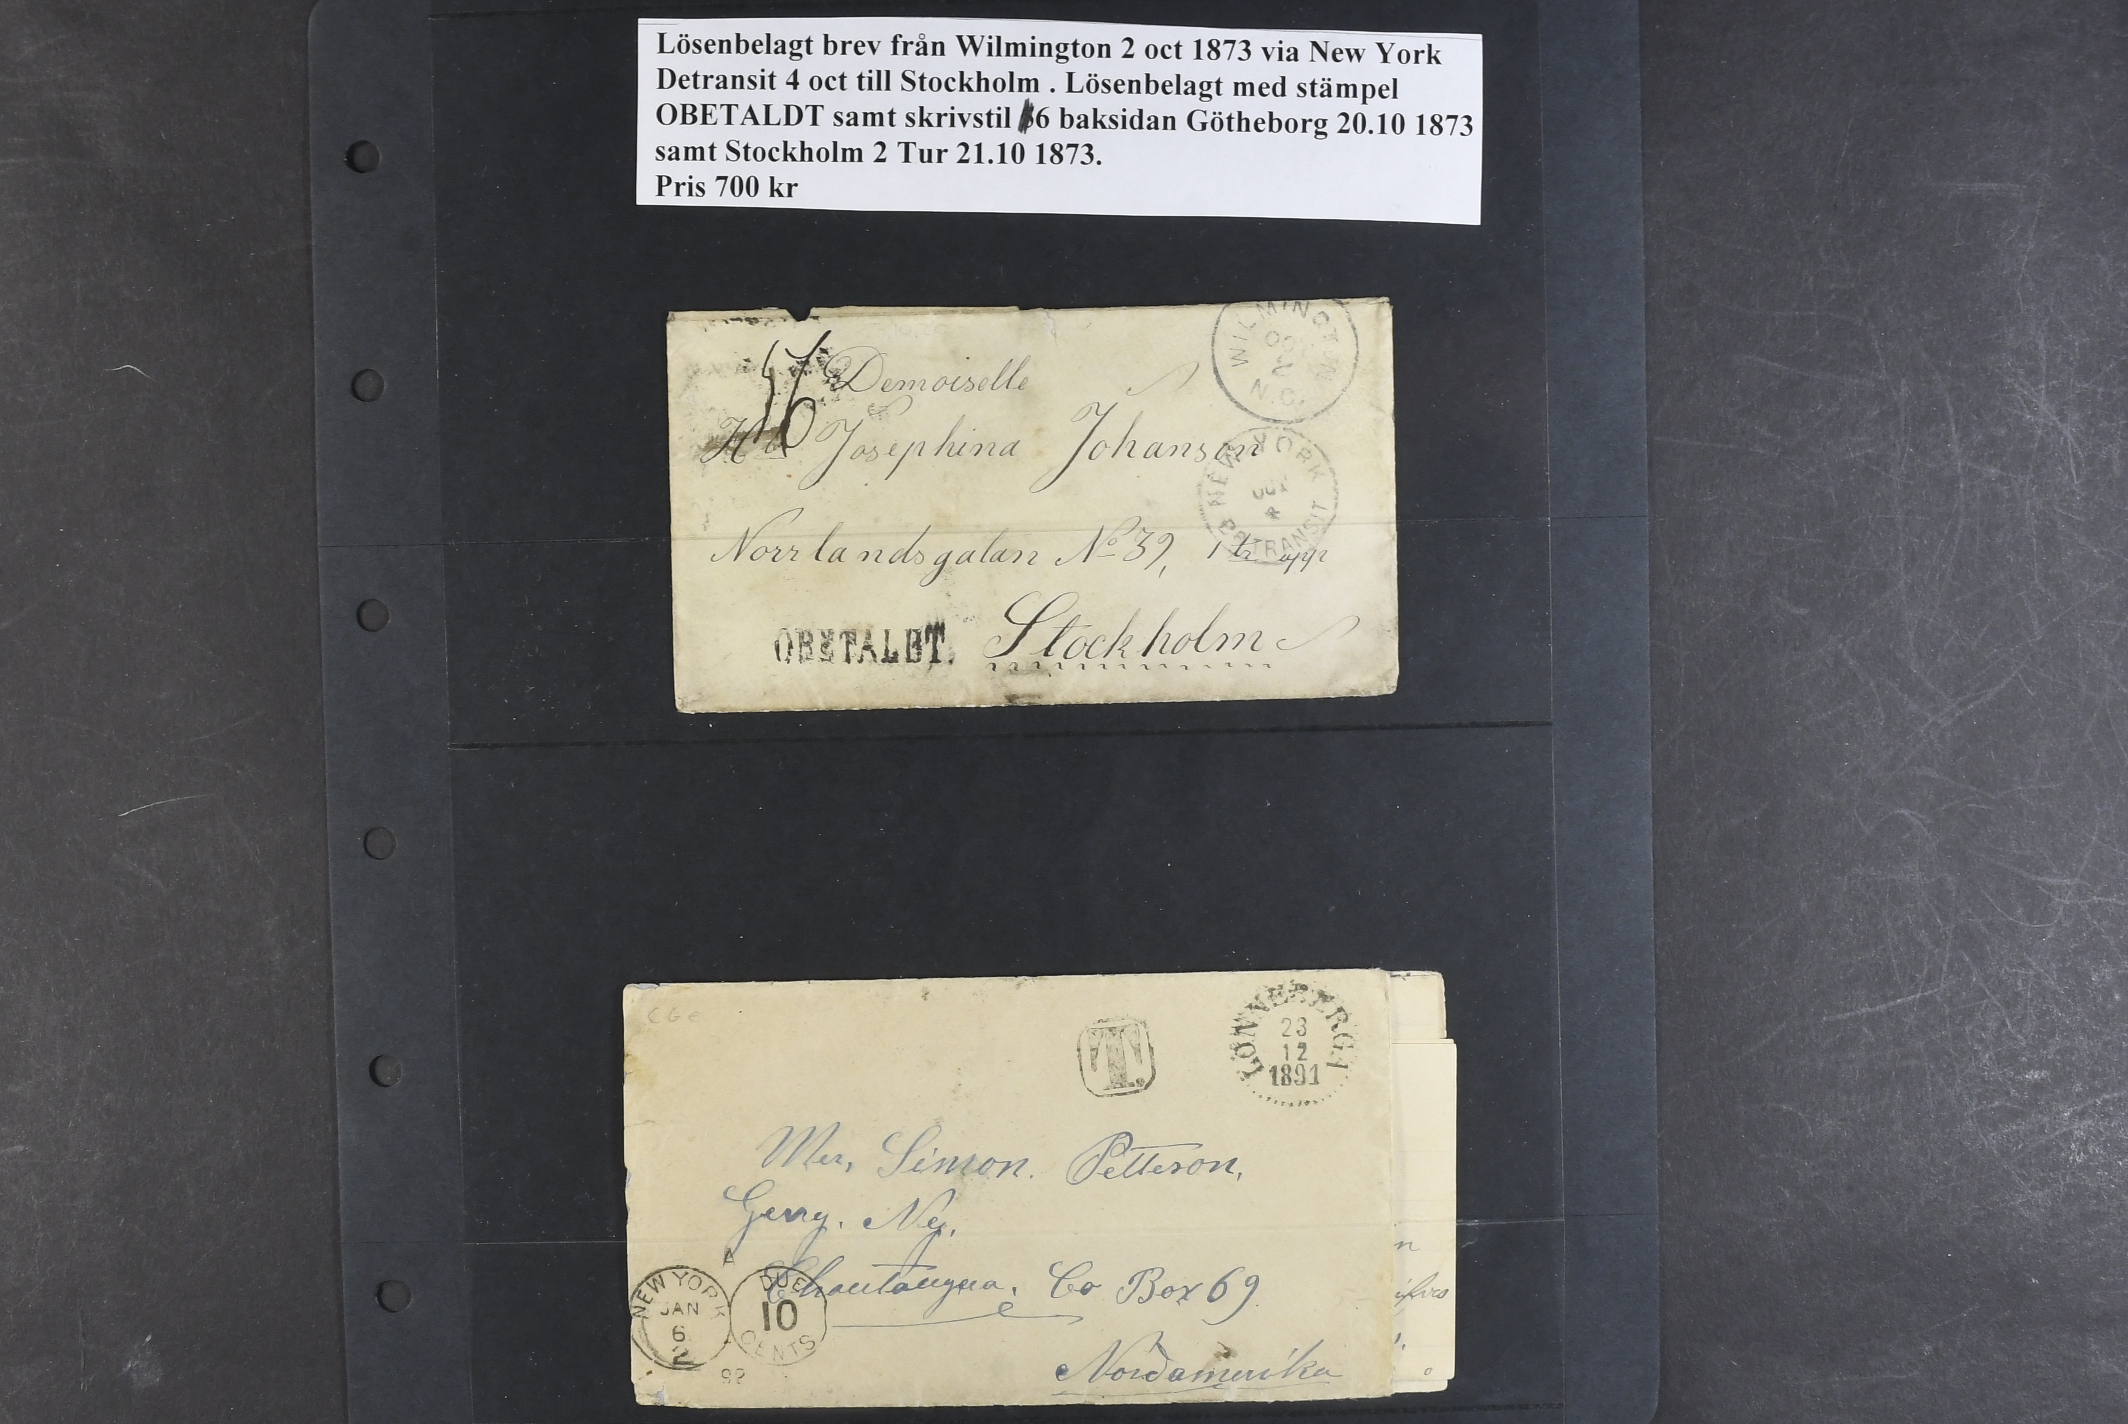 Lösenbelagt brev från Wilmington 2 oct 1873 via New York
Detransit 4 oct till Stockholm . Lösenbelagt med stämpel
OBETALDT samt skrivstil 6 baksidan Götheborg 20.10 1873
samt Stockholm 2 Tur 21.10 1873.
Pris 700 kr
WILMINGTON
N.C.
Demoiselle
Josephina Johanson
NEW YORK
TRANSIT
Norrlandsgatan No 39, 1 tr upp
OBETALDT. Stockholm
CGE
T.
LÖNNEBERGA
23
12
1891
Mr, Simon. Petterson,
Gerry. Ny.
Chautauqua. Co Box 69
NEW YORK
JAN
6
2
92
DUE
10
CENTS
Nordamerika